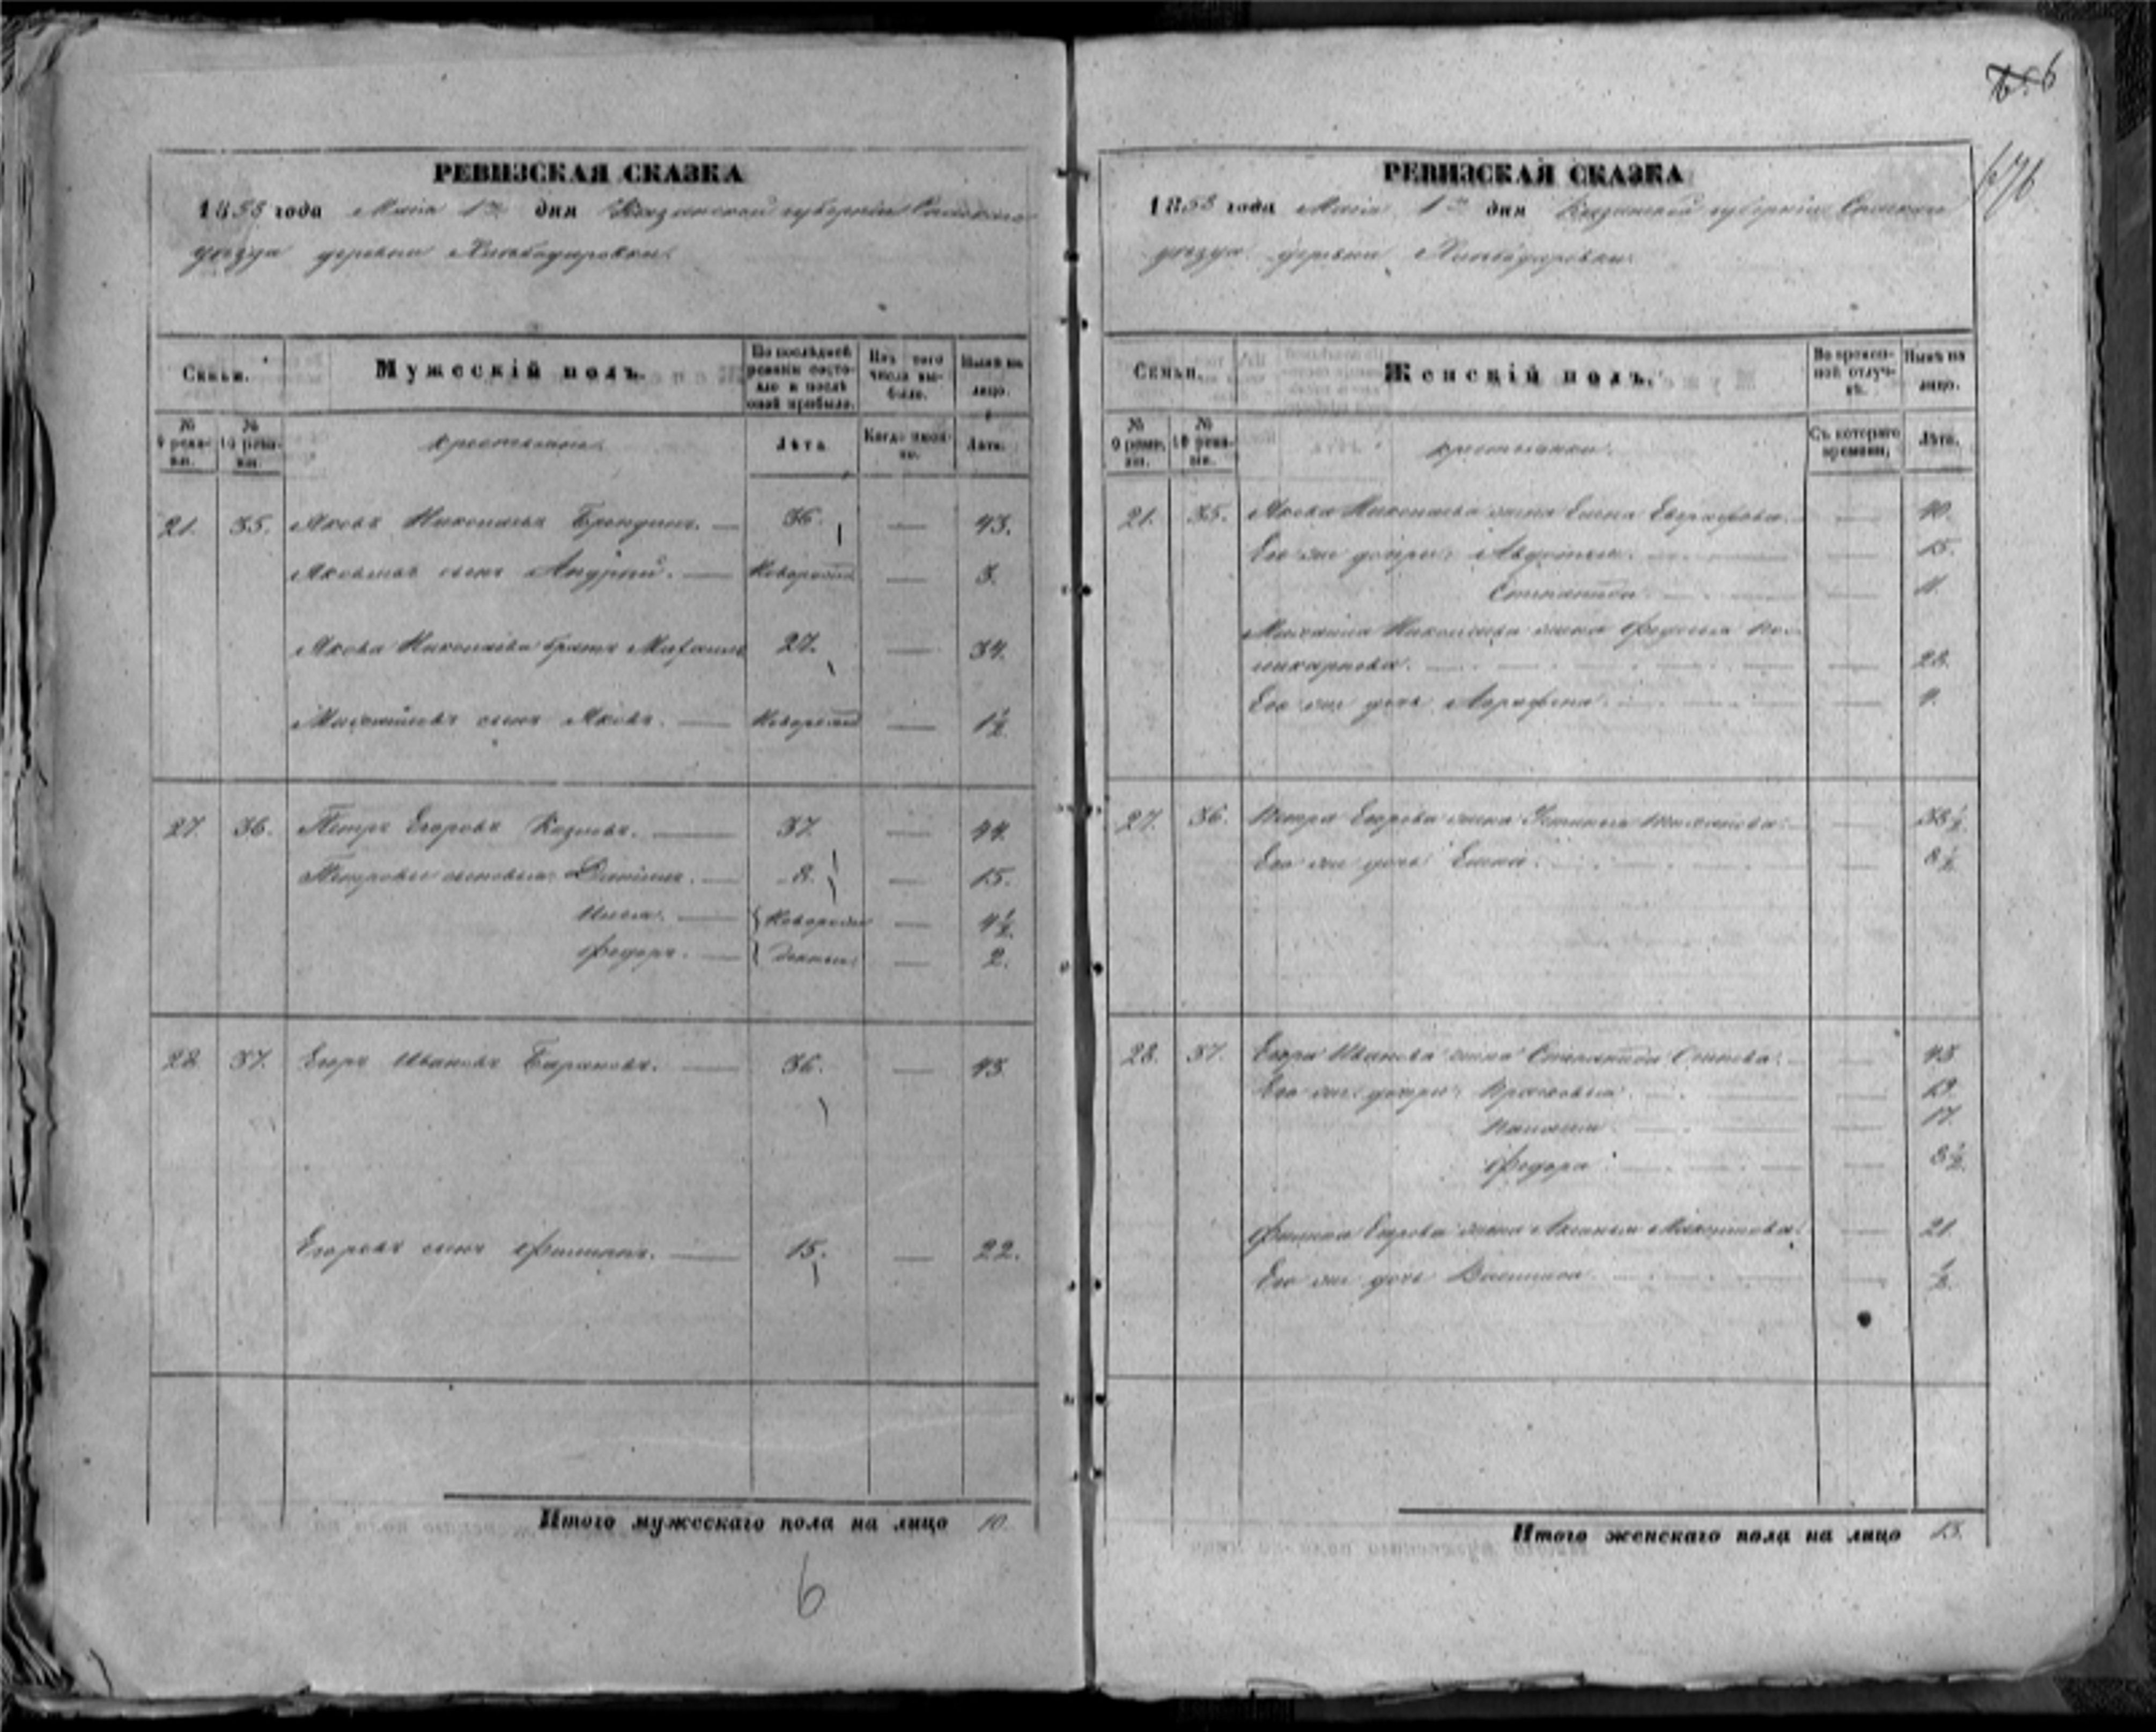 6
676
РЕВИЗСКАЯ СКАЗКА
1858 года Маія 1го дня Казанской губерніи Спасскаго
уѣзда деревни
Семьи.
Мужескій полъ.
По послѣдней ревизіи состояло и послѣ оной прибыло.
Изъ того числа выбыло.
Нынѣ на лицо.
№ 9 ревизіи.
№ 10 ревизіи.
крестьяне.
Лѣта
Когда именно.
Лѣта.
21. 35. Яковъ Николаевъ 36. 43.
Яковлевъ сынъ Андрей. Новорожд 3.
Якова Николаева братъ Михаилъ 27. 34.
Михайловъ сынъ Яковъ. Новорожд 1½
27. 36. Петръ Егоровъ Казловъ. 37. 44.
Петровы сыновья: Данила. 8. 15.
Илья. Новорож 4½
Федоръ. денные 2.
28. 37. Егоръ Ивановъ Барановъ. 36. 43.
Егоровъ сынъ Филипъ. 15. 22.
Итого мужескаго пола на лицо 10.
6
РЕВИЗСКАЯ СКАЗКА
1858 года Маія 1го дня Казанской губерніи Спасскаго
уѣзда деревни
Семьи.
Женскій полъ.
Во временной отлучкѣ.
Нынѣ на лицо.
№ 9 ревизіи.
№ 10 ревизіи.
крестьянки.
Съ котораго времени.
Лѣта.
21. 35. Якова Николаева жена Елена Евграфова. 40.
Его же дочери: Авдотья. 15.
Степанида. 11.
Михаила Николаева жена Федосья По-
ликарпова. 28.
Его же дочь Аграфена. 9.
27. 36. Петра Егорова жена Устинья 38½
Его же дочь Елена. 8½
28. 37. Егора Иванова жена Степанида Осипова. 43
Его же дочери: Прасковья. 19.
17.
Федора. 8½
Филипа Егорова жена Аксинья 21.
Его же дочь Василиса. ½
Итого женскаго пола на лицо 13.